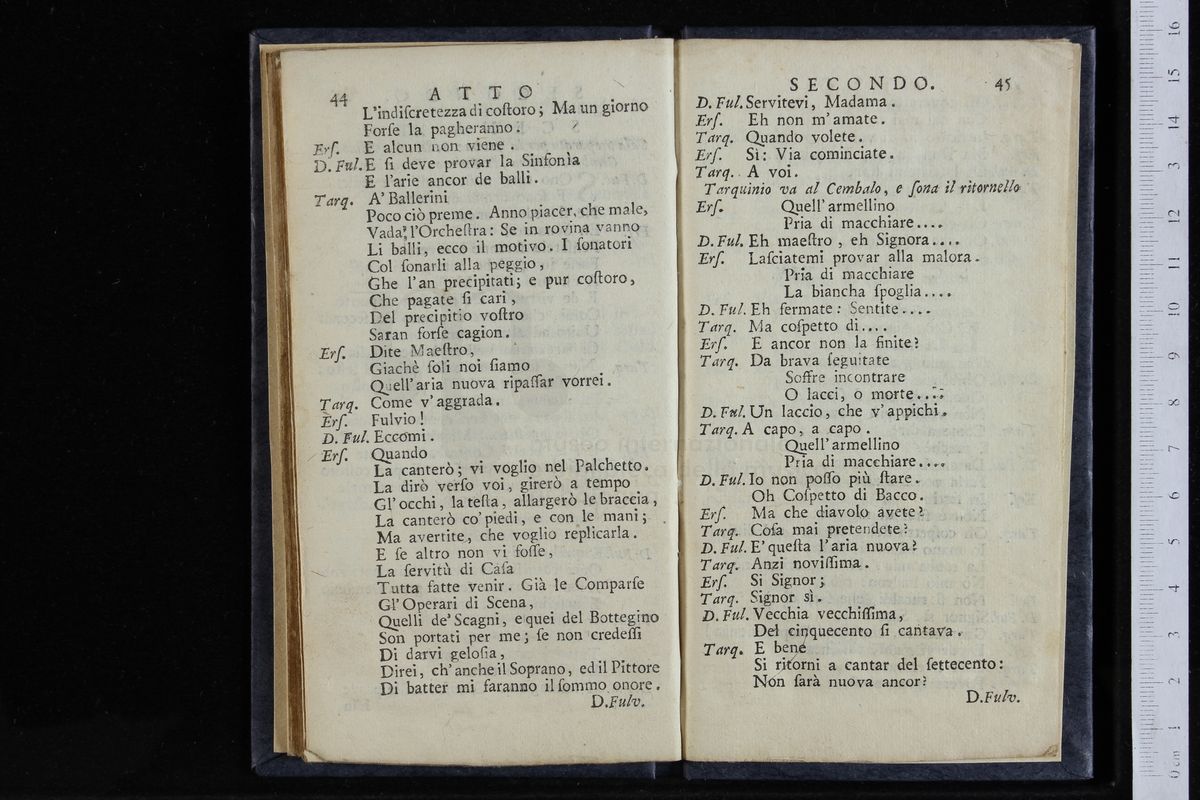 44 ATTO
L'indiſcretezza di coſtoro; Ma un giorno
Forſe la pagheranno.
Erſ. E alcun non viene.
D. Ful. E ſi deve provar la Sinfonìa
E l'arie ancor de balli.
Tarq. A' Ballerini
Poco ciò preme. Anno piacer, che male,
Vada l'Orcheſtra: Se in rovina vanno
Li balli, ecco il motivo. I ſonatori
Col ſonarli alla peggio,
Ghe l'an precipitati; e pur coſtoro,
Che pagate ſi cari,
Del precipitio voſtro
Saran forſe cagion.
Erſ. Dite Maeſtro,
Giachè ſoli noi ſiamo
Quell'aria nuova ripaſſar vorrei.
Tarq. Come v'aggrada.
Erſ. Fulvio!
D. Ful. Eccomi.
Erſ. Quando
La canterò; vi voglio nel Palchetto.
La dirò verſo voi, girerò a tempo
Gl'occhi, la teſta, allargerò le braccia,
La canterò co'piedi, e con le mani;
Ma avertite, che voglio replicarla.
E ſe altro non vi foſſe,
La ſervitù di Caſa
Tutta fatte venir. Già le Comparſe
Gl'Operari di Scena,
Quelli de'Scagni, e quei del Bottegino
Son portati per me; ſe non credeſſi
Di darvi geloſia,
Direi, ch'anche il Soprano, ed il Pittore
Di batter mi faranno il ſommo onore.
D.Fulv.
SECONDO. 45
D. Ful. Servitevi, Madama.
Erſ. Eh non m'amate.
Tarq. Quando volete.
Erſ. Sì: Via cominciate.
Tarq. A voi.
Tarquinio va al Cembalo, e ſona il ritornello
Erſ. Quell'armellino
Pria di macchiare....
D. Ful. Eh maeſtro, eh Signora....
Erſ. Laſciatemi provar alla malora.
Pria di macchiare
La biancha ſpoglia....
D. Ful. Eh fermate: Sentite....
Tarq. Ma coſpetto di....
Erſ. E ancor non la finite?
Tarq. Da brava ſeguitate
Soffre incontrare
O lacci, o morte....
D. Ful. Un laccio, che v'appichi.
Tarq. A capo, a capo.
Quell'armellino
Pria di macchiare....
D. Ful. Io non poſſo più ſtare.
Oh Coſpetto di Bacco.
Erſ. Ma che diavolo avete?
Tarq. Coſa mai pretendete?
D. Ful. E'queſta l'aria nuova?
Tarq. Anzi noviſſima.
Erſ. Si Signor;
Tarq. Signor sì.
D. Ful. Vecchia vecchiſſima,
Del cinquecento ſi cantava.
Tarq. E bene
Si ritorni a cantar del ſettecento:
Non ſarà nuova ancor?
D.Fulv.
0 cm 1 2 3 4 5 6 7 8 9 10 11 12 13 14 15 16